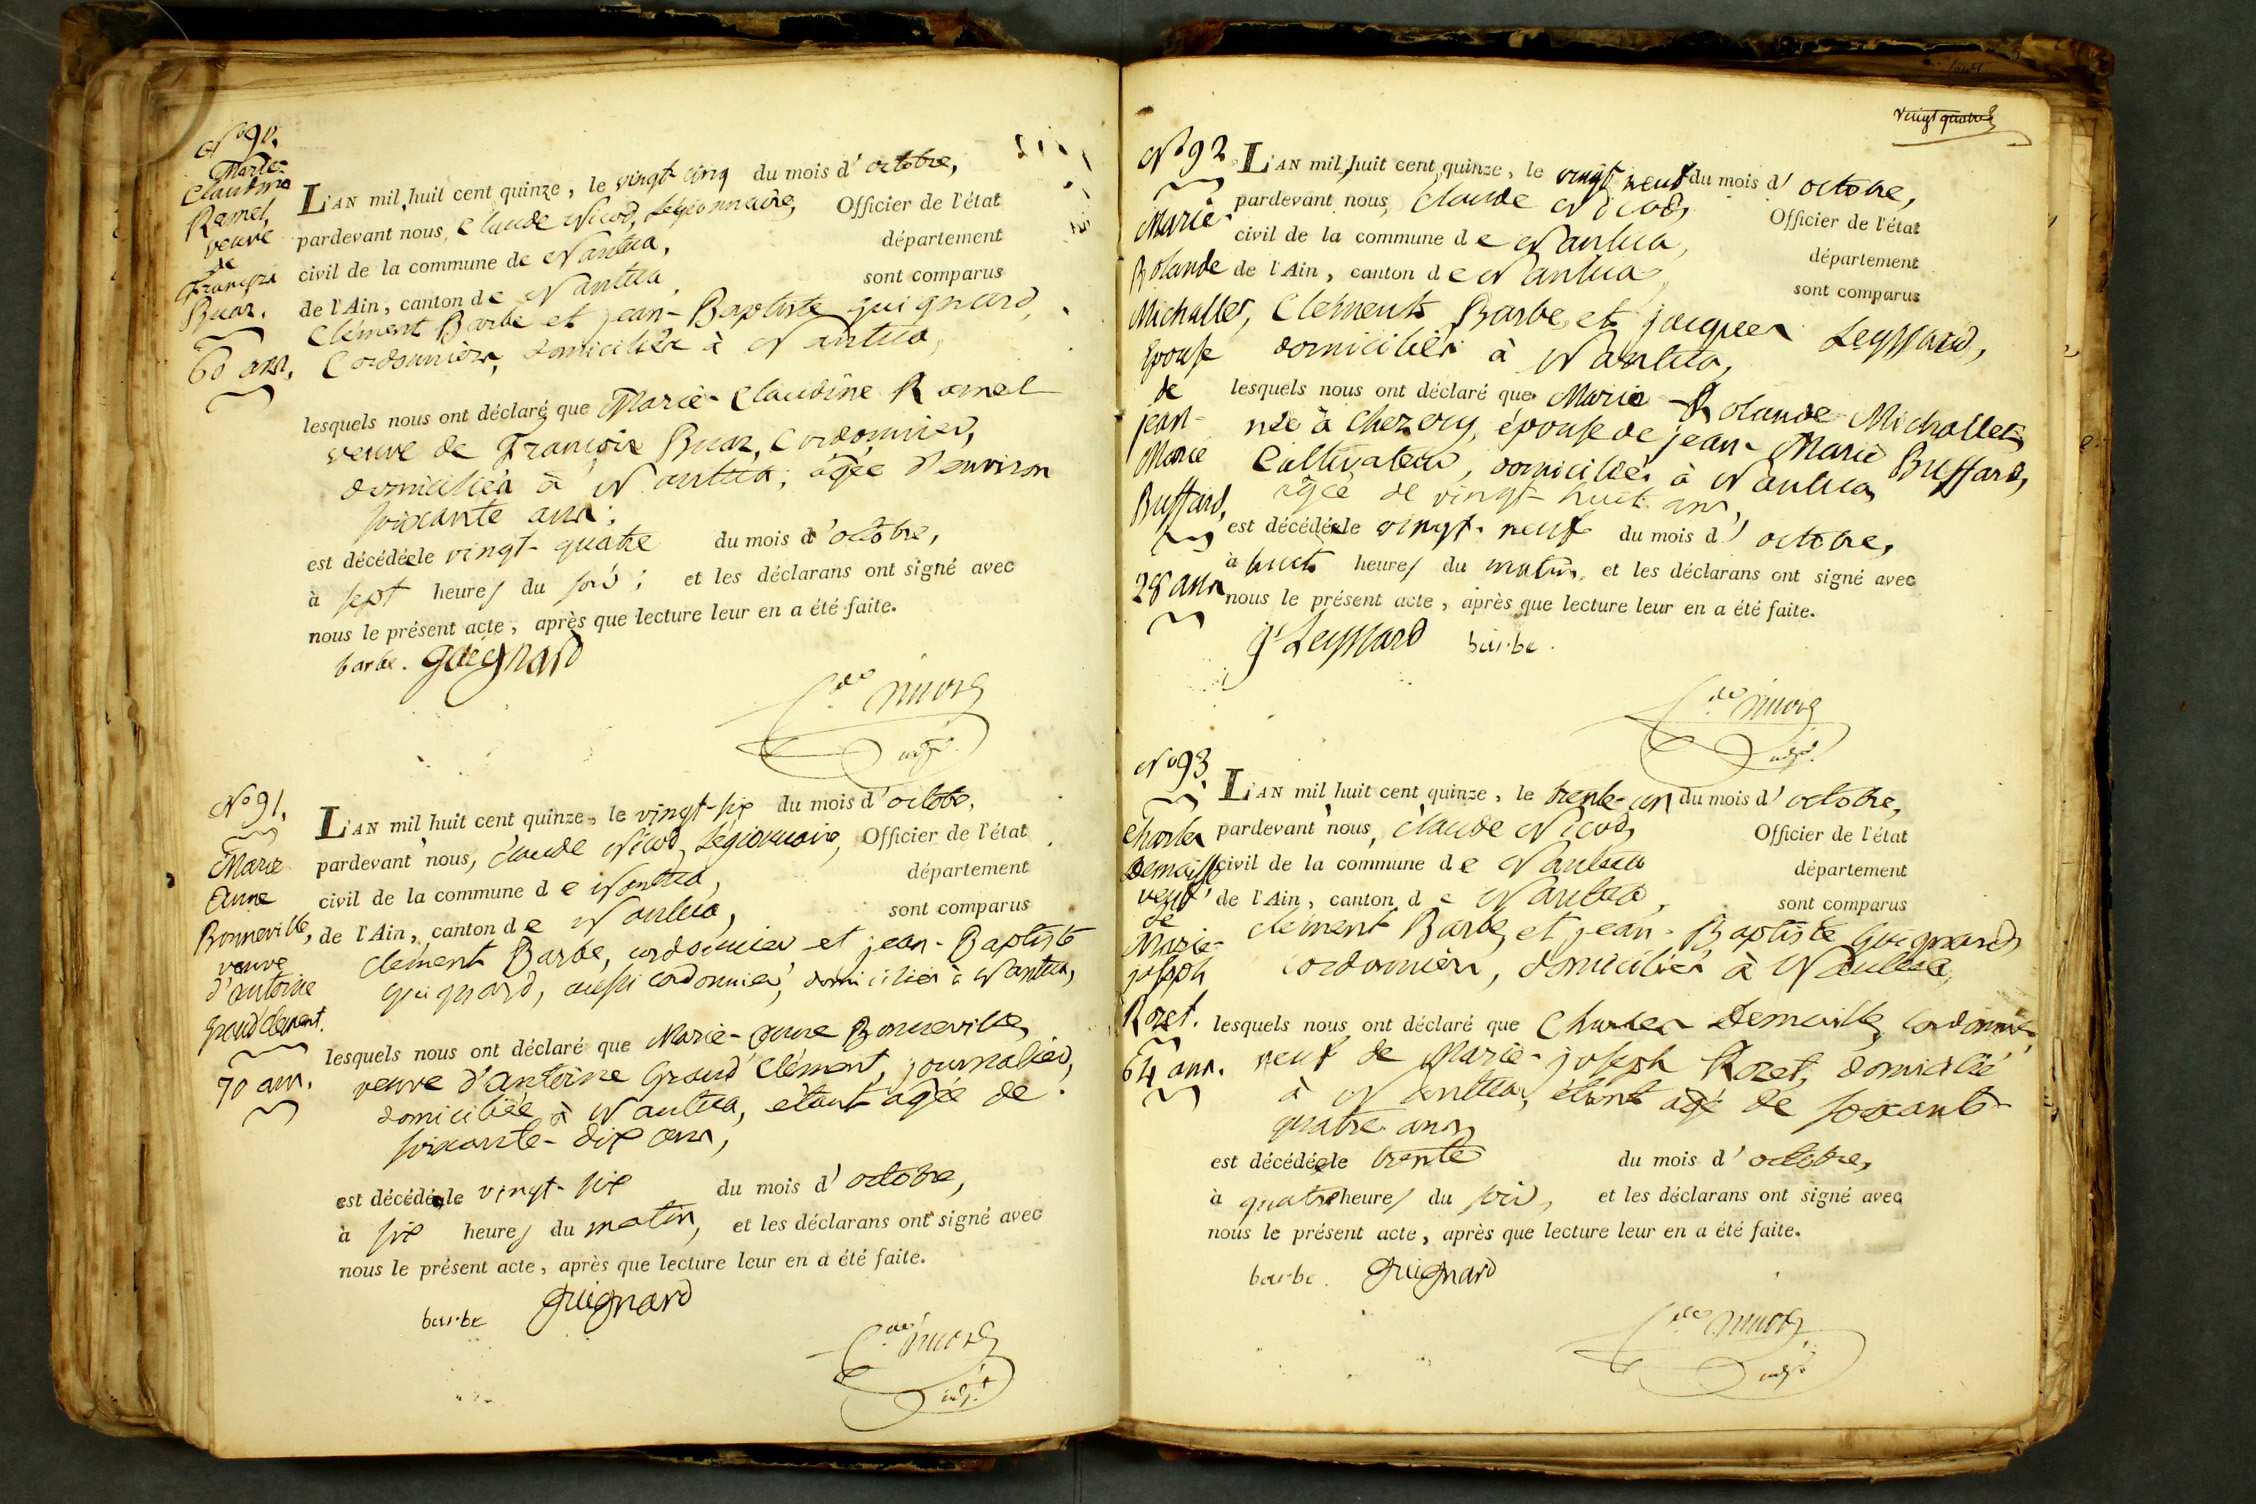 N° 90.
Marie-
Claudine
Ramel,
veuve
de
François
Buaz.
60 ans.
L'AN mil huit cent quinze, le vingt-cinq du mois d'octobre,
pardevant nous, Claude Nicod, Légionnaire, Officier de l'état
civil de la commune de Nantua, département
de l'Ain, canton de Nantua, sont comparus
Clément Barbe et jean-Baptiste guignard,
Cordonniers, domiciliés à Nantua,
lesquels nous ont déclaré que Marie-Claudine Ramel
veuve de François Buaz, Cordonnier,
domiciliée à Nantua, âgée d'environ
soixante ans;
est décédée le vingt-quatre du mois d'octobre,
à sept heures du soir; et les déclarans ont signé avec
nous le présent acte, après que lecture leur en a été faite.
barbe. guignard
C.de nicod
adj.t
N° 91.
Marie
Anne
Bonneville,
veuve
d'antoine
Grand'clément.
70 ans.
L'AN mil huit cent quinze, le vingt-six du mois d'octobre,
pardevant nous, Claude Nicod, Légionnaire, Officier de l'état
civil de la commune de Nantua, département
de l'Ain, canton de Nantua, sont comparus
Clément Barbe, cordonnier et jean-Baptiste
guignard, aussi cordonnier, domiciliés à Nantua,
lesquels nous ont déclaré que Marie-Anne Bonneville,
veuve d'antoine Grand'Clément, journalier,
domiciliée à Nantua, étant âgée de
soixante-dix ans,
est décédée le vingt-six du mois d'octobre,
à six heures du matin, et les déclarans ont signé avec
nous le présent acte, après que lecture leur en a été faite.
barbe guignard
C.de nicod
adj.t
vingt quatre
N° 92
Marie-
Rolande
Michallet,
Epouse
de
jean-
Marie
Buffard,
28 ans
L'AN mil huit cent quinze, le vingt neuf du mois d'octobre,
pardevant nous, Claude Nicod, Officier de l'état
civil de la commune de Nantua, département
de l'Ain, canton de Nantua, sont comparus
Clément Barbe, et jacques Leyssard,
domiciliés à Nantua,
lesquels nous ont déclaré que Marie-Rolande Michallet,
née à Chezery, épouse de jean-Marie Buffard,
Cultivateur, domiciliés à Nantua,
agée de vingt-huit ans,
est décédée le vingt-neuf du mois d'octobre,
à huit heures du matin, et les déclarans ont signé avec
nous le présent acte, après que lecture leur en a été faite.
j Leyssard barbe.
C.de nicod
adj.t
N° 93
Charles
Demaille
veuf
de
Marie-
joseph
Rozet.
64 ans.
L'AN mil huit cent quinze, le trente-un du mois d'octobre,
pardevant nous, Claude Nicod, Officier de l'état
civil de la commune de Nantua département
de l'Ain, canton de Nantua, sont comparus
Clément Barbe, et jean-Baptiste Guignard,
cordonniers, domiciliés à Nantua,
lesquels nous ont déclaré que Charles Demaille, cordonnier,
veuf de Marie-joseph Rozet, domicilié
à Nantua, étant agé de soixante-
quatre ans,
est décédée le trente du mois d'octobre,
à quatre heures du soir, et les déclarans ont signé avec
nous le présent acte, après que lecture leur en a été faite.
barbe. guignard
C.de nicod
adj.t